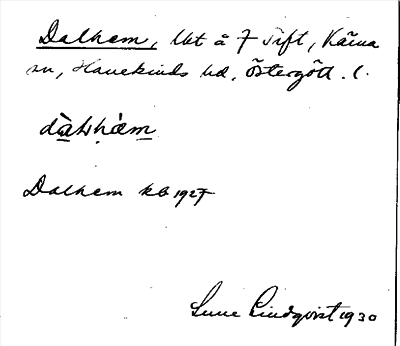 Dalhem, lht å F Tift, Kärna
sn, Hanekinds hd, Östergötl. l.
Dalhem kb 1927
Sune Lindqvist 1930